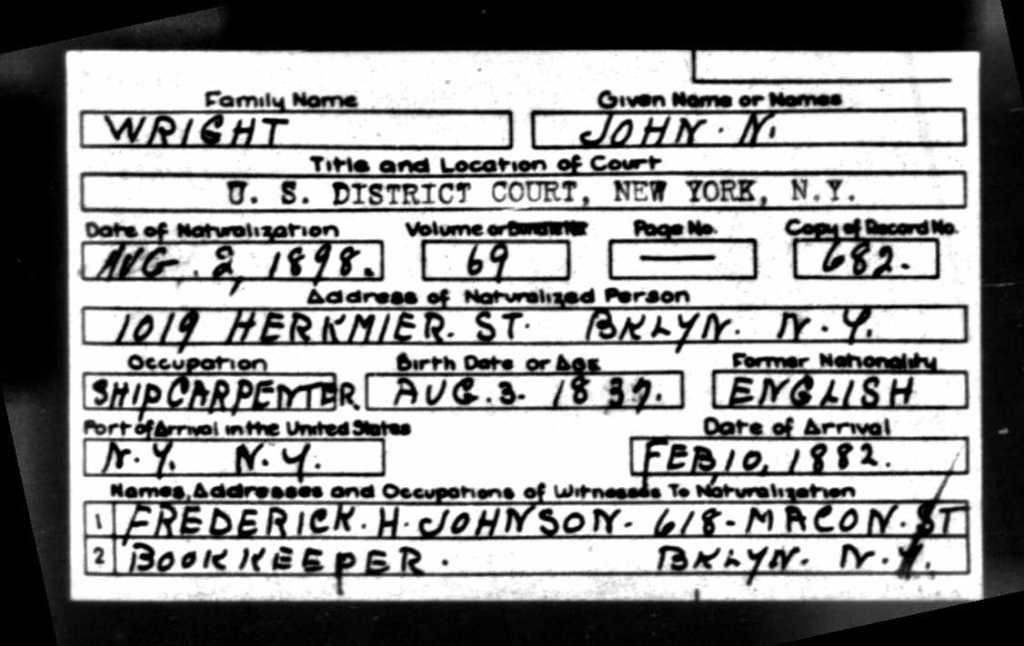 Family Name Given Name or Names
WRIGHT JOHN. N.
Title and Location of Court
U. S. DISTRICT COURT, NEW YORK, N.Y.
Date of Naturalization Volume or Page No. Copy of Record No.
AUG. 2, 1898. 69 — 682.
Address of Naturalized Person
1019 HERKMIER. ST. BKLYN. N.Y.
Occupation Birth Date or Age Former Nationality
SHIP CARPENTER AUG. 3. 1837. ENGLISH
Port of Arrival in the United States Date of Arrival
N.Y. N.Y. FEB, 10, 1882.
Names, Addresses and Occupations of Witnesses To Naturalization
1 FREDERICK. H. JOHNSON. 618- MACON. ST
2 BOOKKEEPER. BKLYN. N.Y.